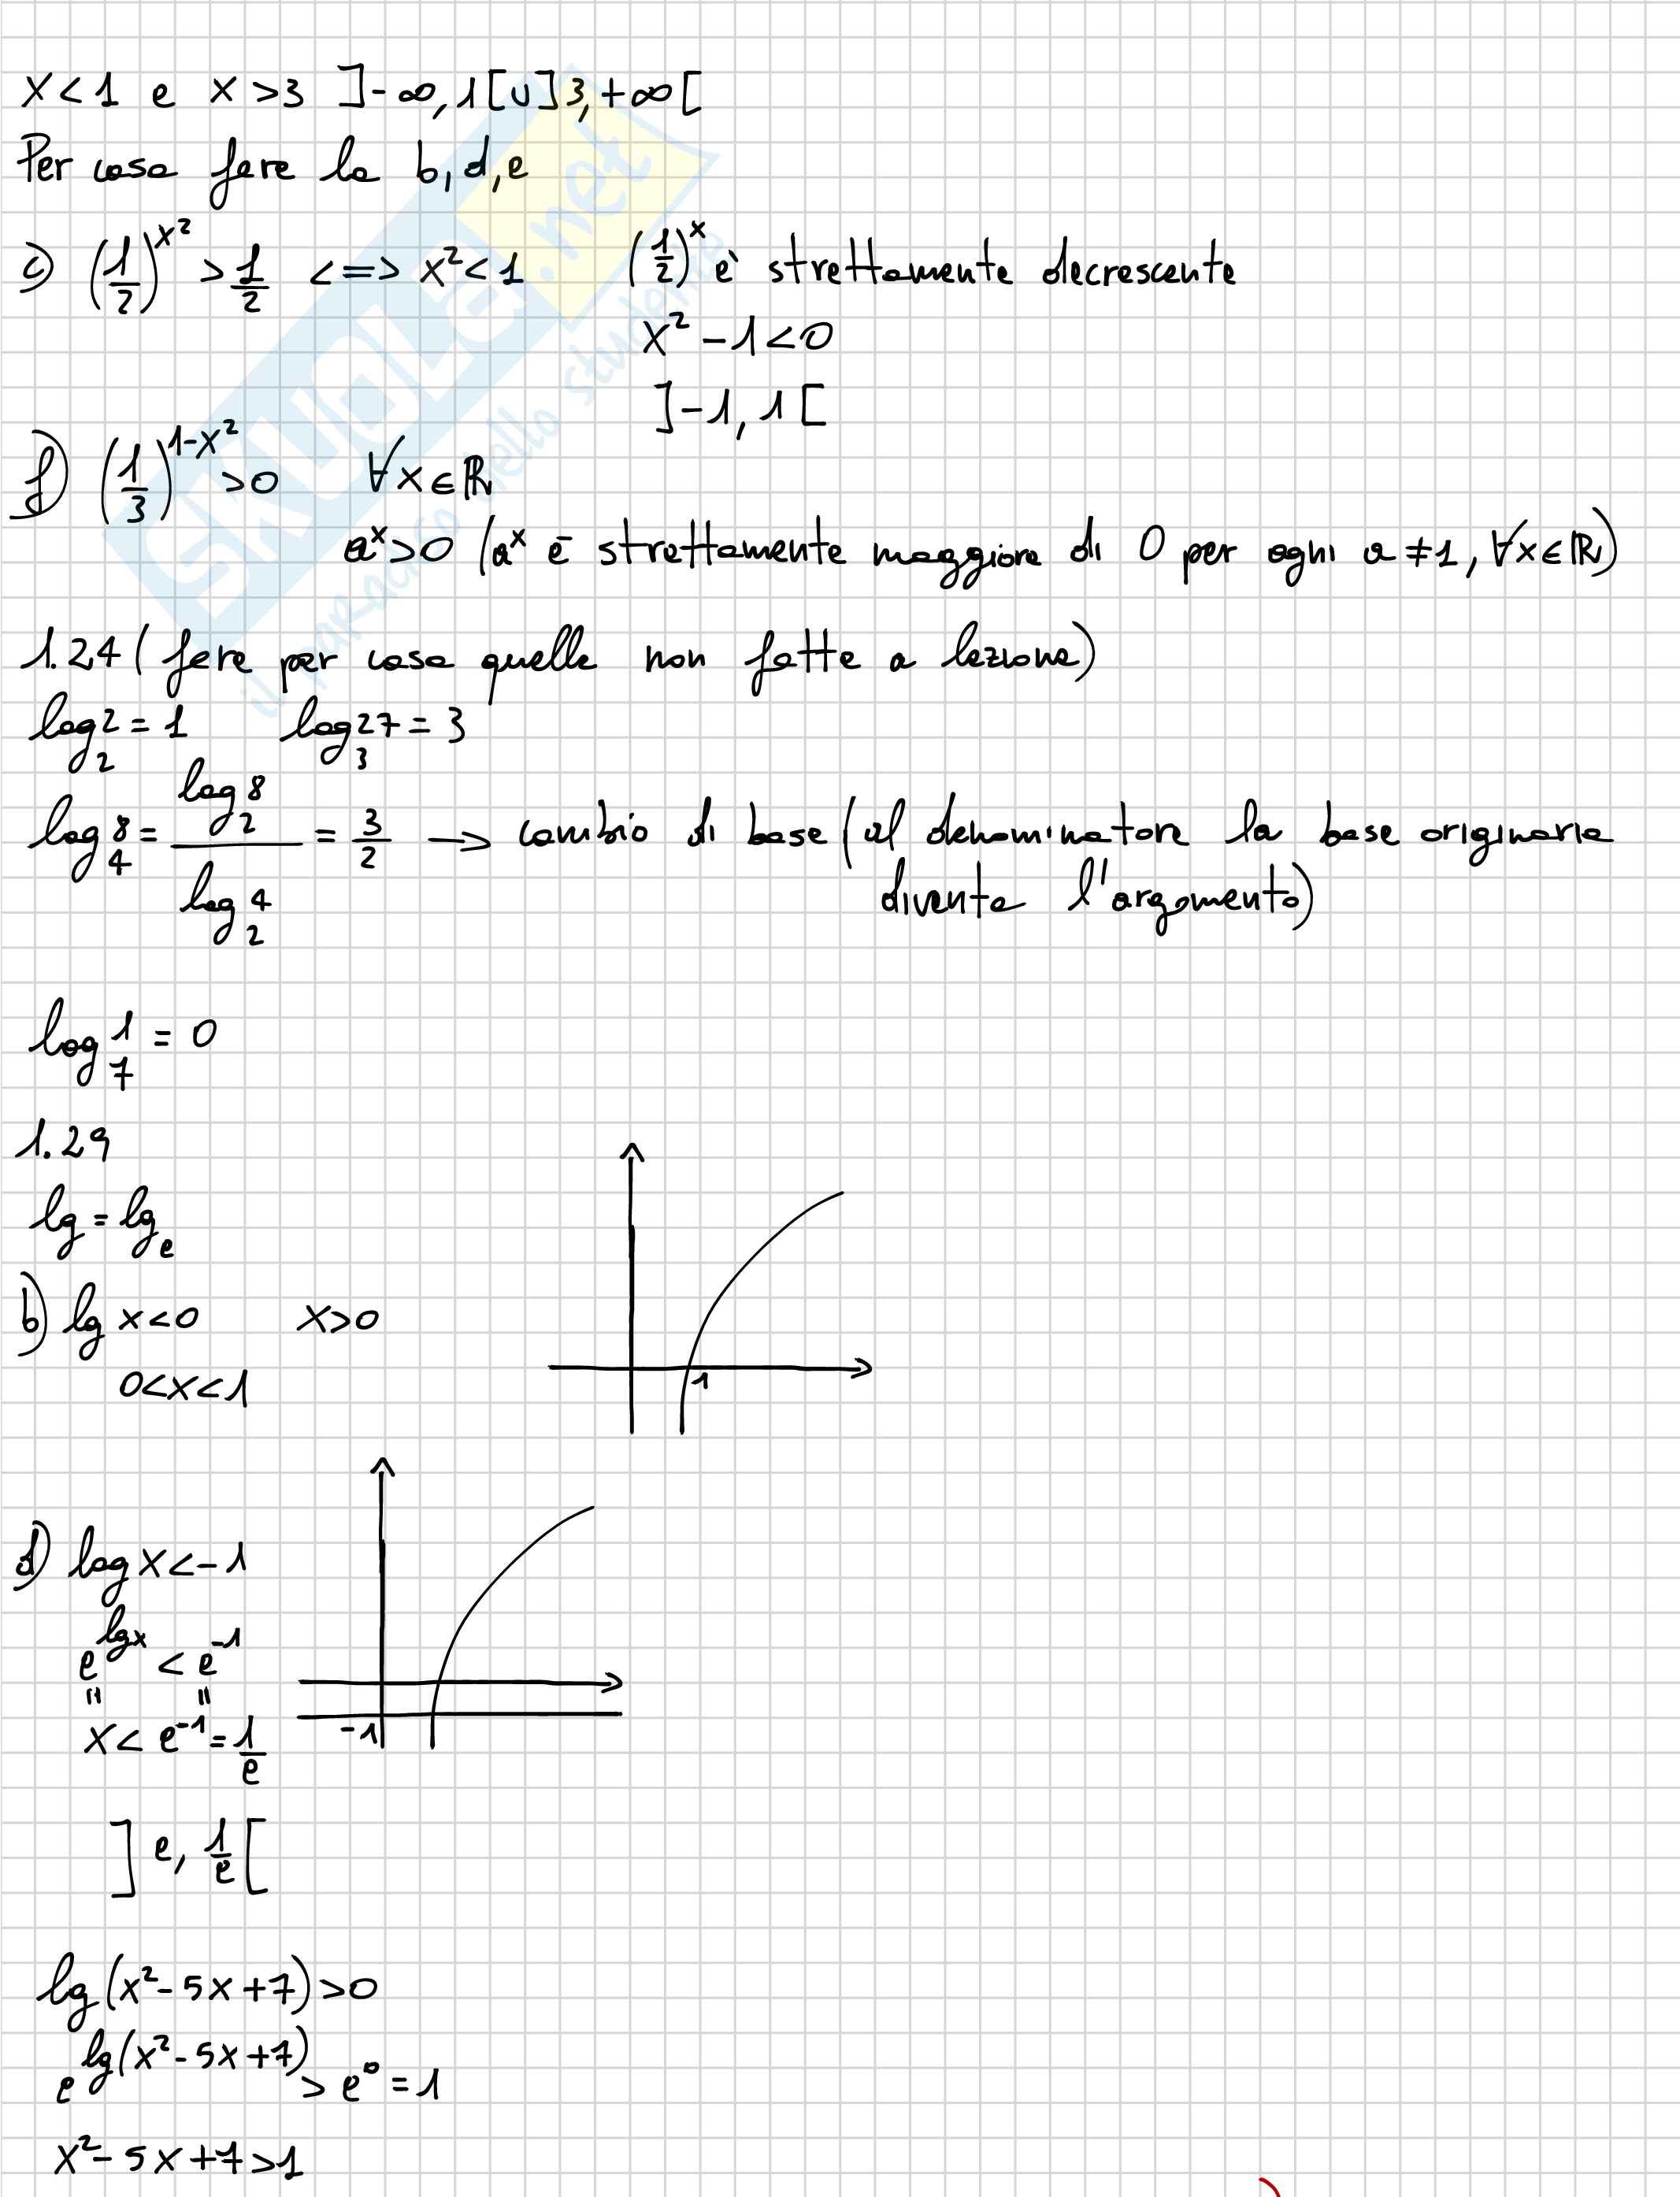 x<1 e x>3 ]-∞,1[∪]3,+∞[
Per casa fare la b,d,e
c) (1/2)^x² > 1/2 <=> x²<1 (1/2)^x è strettamente decrescente
x²-1<0
]-1,1[
f) (1/3)^1-x² >0 ∀x∈ℝ
a^x>0 (a^x è strettamente maggiore di 0 per ogni a≠1, ∀x∈ℝ)
1.24 (fare per casa quelle non fatte a lezione)
log₂2 = 1 log₃27 = 3
log₄8 = log₂8 / log₂4 = 3/2 → cambio di base (al denominatore la base originaria
diventa l'argomento)
log₇1 = 0
1.29
lg = lgₑ
b) lg x<0 x>0
0<x<1
1
d) log x<-1
e^lgx < e^-1
= =
x< e^-1 = 1/e
-1
]e, 1/e[
lg(x²-5x+7)>0
e^lg(x²-5x+7) > e^0 = 1
x²-5x+7>1
SKUOLA.net
il paradiso dello studente